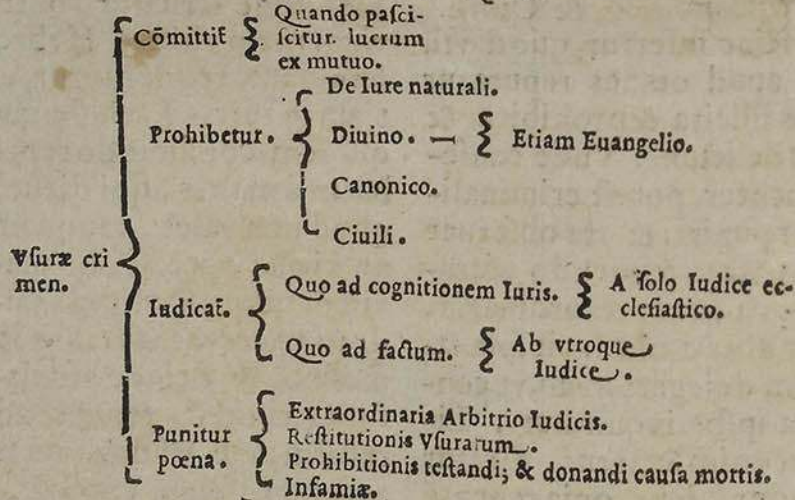 Cōmittit̄
Quando paſci-
ſcitur. lucrum
ex mutuo.
Prohibetur.
De Iure naturali.
Diuino.
Etiam Euangelio.
Canonico.
Ciuili.
Vſuræ cri
men.
Iudicat̄.
Quo ad cognitionem Iuris.
A ſolo Iudice ec-
cleſiaſtico.
Quo ad factum.
Ab vtroque
Iudice.
Punitur
pœna.
Extraordinaria Arbitrio Iudicis.
Reſtitutionis Vſurarum.
Prohibitionis teſtandi; & donandi cauſa mortis.
Infamiæ.